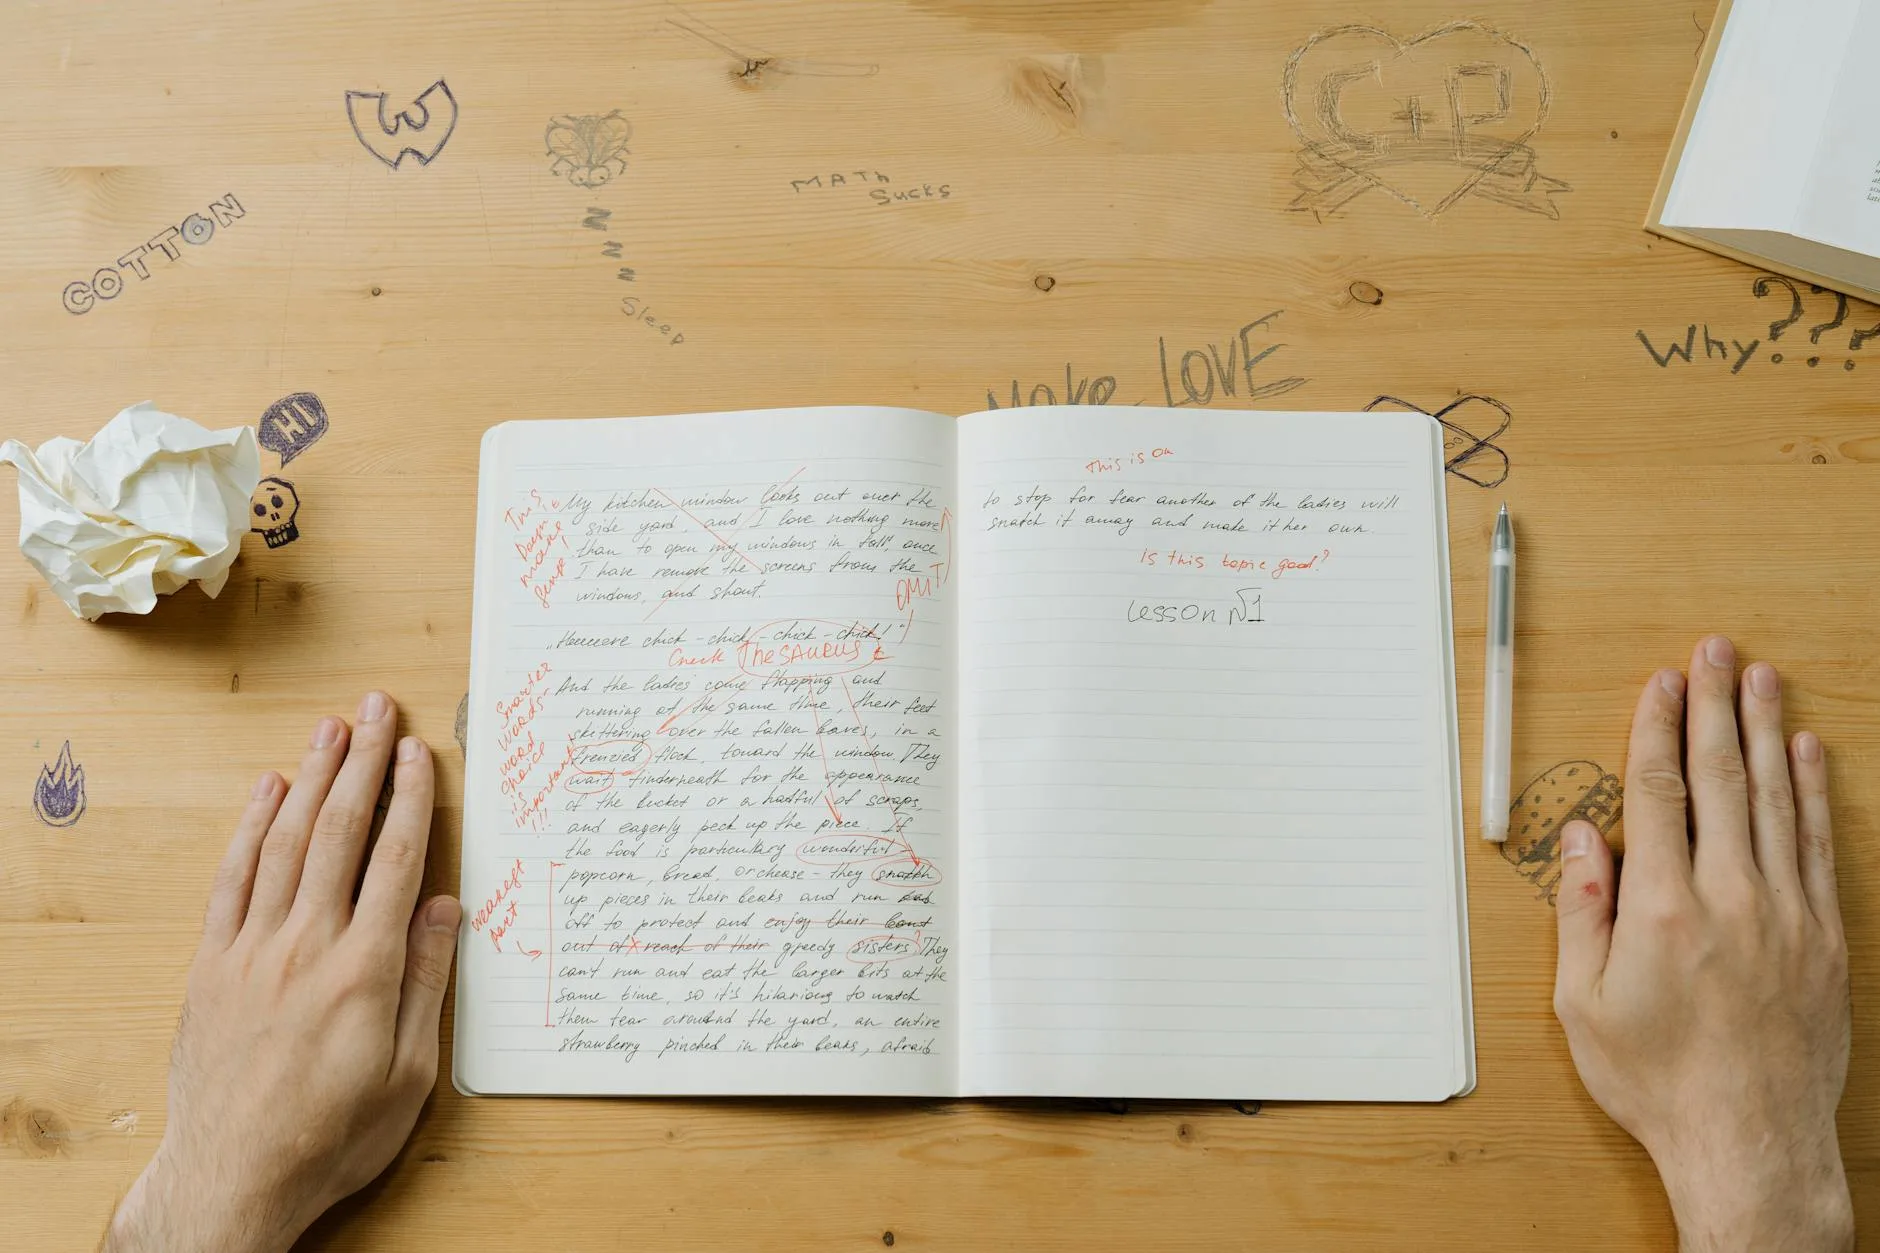 W
COTTON
MATH
SUCKS
C+P
Sleep
HI
MAKE LOVE
Why???
This
Doesn't
make
sense!
My kitchen window looks out over the
side yard, and I love nothing more
than to open my windows in fall, once
I have remove the screens from the
windows, and shout.
OMIT
„Heeeere chick - chick - chick - chick!"
Check THESAURUS
Smarter
words -
word
choice
is
important
!!!
And the ladies come flapping and
running at the same time, their feet
skittering over the fallen leaves, in a
frenzied flock, toward the window. They
wait underneath for the appearance
of the bucket or a hatful of scraps,
and eagerly peck up the piece. If
the food is particullary wonderful -
popcorn, bread, or cheese - they snatch
up pieces in their beaks and run
off to protect and enjoy their
out of reach of their greedy sisters? They
can't run and eat the larger bits at the
same time, so it's hilarious to watch
them tear around the yard, an entire
strawberry pinched in their beaks, afraid
weakest
part
this is ok
to stop for fear another of the ladies will
snatch it away and make it her own.
is this topic good?
Lesson №1